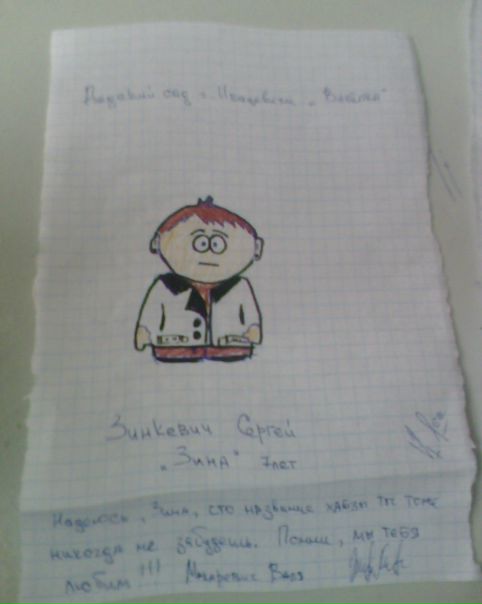 Детский сад г. Ивацевичи „Василёк"
Зинкевич Сергей
„Зина" 7лет
Надеюсь, Зина, сто название хабзы ты тоже
никогда не забудешь. Помни, мы тебя
любим!!! Макаревич Вася